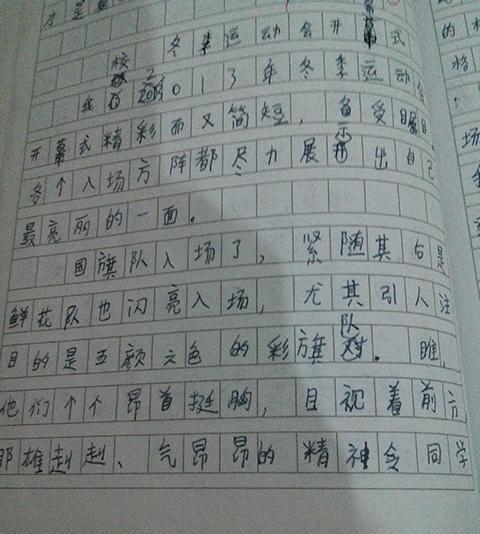 才是
冬季运动会开幕式
我校2013年冬季运动会
开幕式精彩而又简短，备受瞩目
各个入场方阵都尽力展示出自己
最亮丽的一面。
国旗队入场了，紧随其后是
鲜花队也闪亮入场，尤其引人注
目的是五颜六色的彩旗队。瞧，
他们个个昂首挺胸，目视着前方，
那雄赳赳、气昂昂的精神令同学
的
将
场